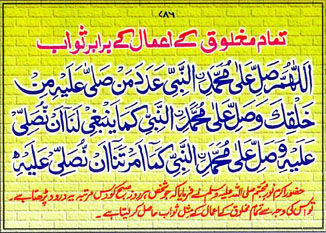 ۷۸۶
تمام مخلوق کے اعمال کے برابر ثواب
اَللّٰهُمَّ صَلِّ عَلٰى مُحَمَّدِنِ النَّبِيِّ عَدَدَ مَنْ صَلّٰى عَلَيْهِ مِنْ
خَلْقِكَ وَصَلِّ عَلٰى مُحَمَّدِنِ النَّبِيِّ كَمَا يَنْبَغِيْ لَنَا اَنْ نُّصَلِّيَ
عَلَيْهِ وَصَلِّ عَلٰى مُحَمَّدِنِ النَّبِيِّ كَمَا اَمَرْتَنَا اَنْ نُّصَلِّيَ عَلَيْهِ
حضور اکرم نور مجسم صلی اللہ علیہ وسلم نے فرمایا کہ جو شخص ہر روز صبح کو دس مرتبہ یہ درود پڑھتا ہے۔
تو اس کی وجہ سے تمام مخلوق کے اعمال کے مثل ثواب حاصل کر لیتا ہے۔